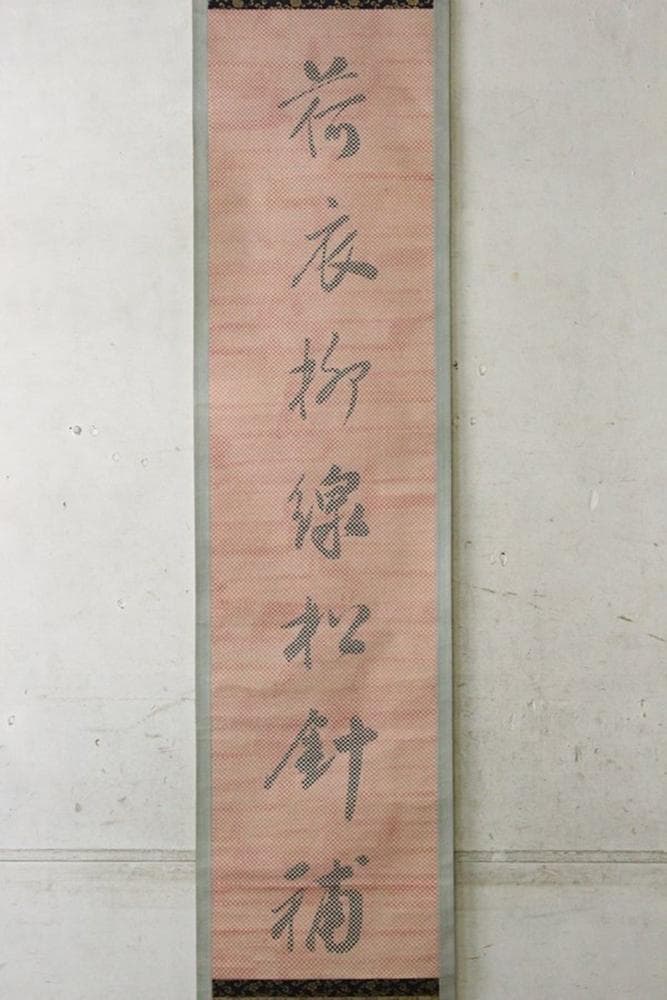 荷衣柳線松針補